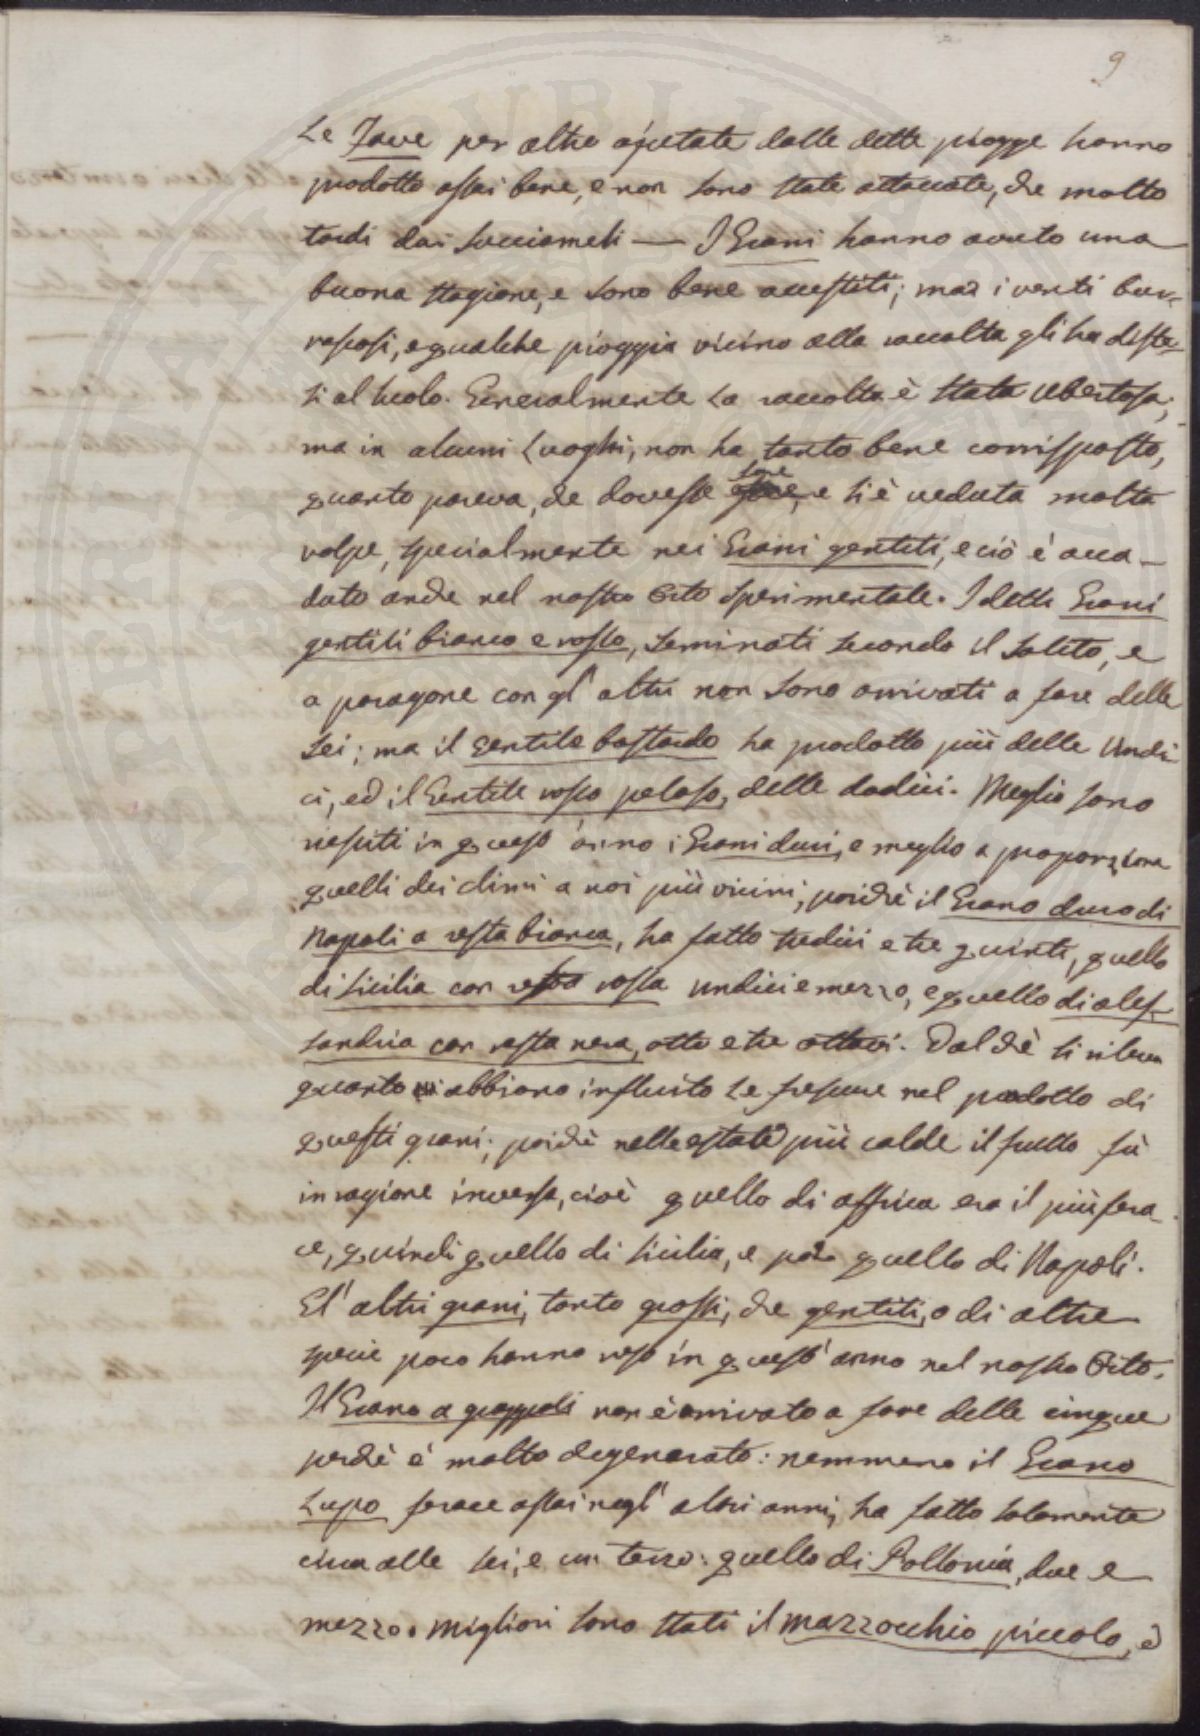 9
Le Fave per altro ajutate dalle dette piogge hanno
prodotto assai bene, e non sono state attaccate, che molto
tardi dai succiameli — I Grani hanno avuto una
buona stagione, e sono bene accestiti; ma i venti bur=
rascosi, e qualche pioggia vicino alla raccolta gli ha diste=
si al suolo. Generalmente la raccolta è stata ubertosa;
ma in alcuni luoghi, non ha tanto bene corrisposto,
quanto pareva, che dovesse fare, e si è veduta molta
volpe, specialmente nei Grani gentili, e ciò è acca-
duto anche nel nostro Orto sperimentale. I detti Grani
gentili bianco e rosso, seminati secondo il solito, e
a paragone con gl'altri non sono arrivati a fare delle
sei; ma il Gentile bastardo ha prodotto più delle undi
ci, ed il Gentile rosso peloso, delle dodici. Meglio sono
riesciti in quest'anno i Grani duri, e meglio a proporzione
quelli dei climi a noi più vicini, poichè il Grano duro di
Napoli a resta bianca, ha fatto tredici e tre quinti, quello
di Sicilia con resta rossa undici e mezzo, e quello di Ales=
sandria con resta nera, otto e tre ottavi. Dal chè si rileva
quanto abbiano influito le frescure nel prodotto di
questi grani; poichè nelle estati più calde il frutto fù
in ragione inversa, cioè quello di Affrica era il più fera-
ce, quindi quello di Sicilia, e poi quello di Napoli.
Gl'altri grani, tanto grossi, che gentili, o di altre
specie poco hanno reso in quest'anno nel nostro Orto.
Il Grano a grappoli non è arrivato a fare delle cinque
perchè è molto degenerato: nemmeno il Grano
Lupo ferace assai negl'altri anni, ha fatto solamente
circa alle sei, e un terzo: quello di Pollonia, due e
mezzo. Migliori sono stati il mazzocchio piccolo, e